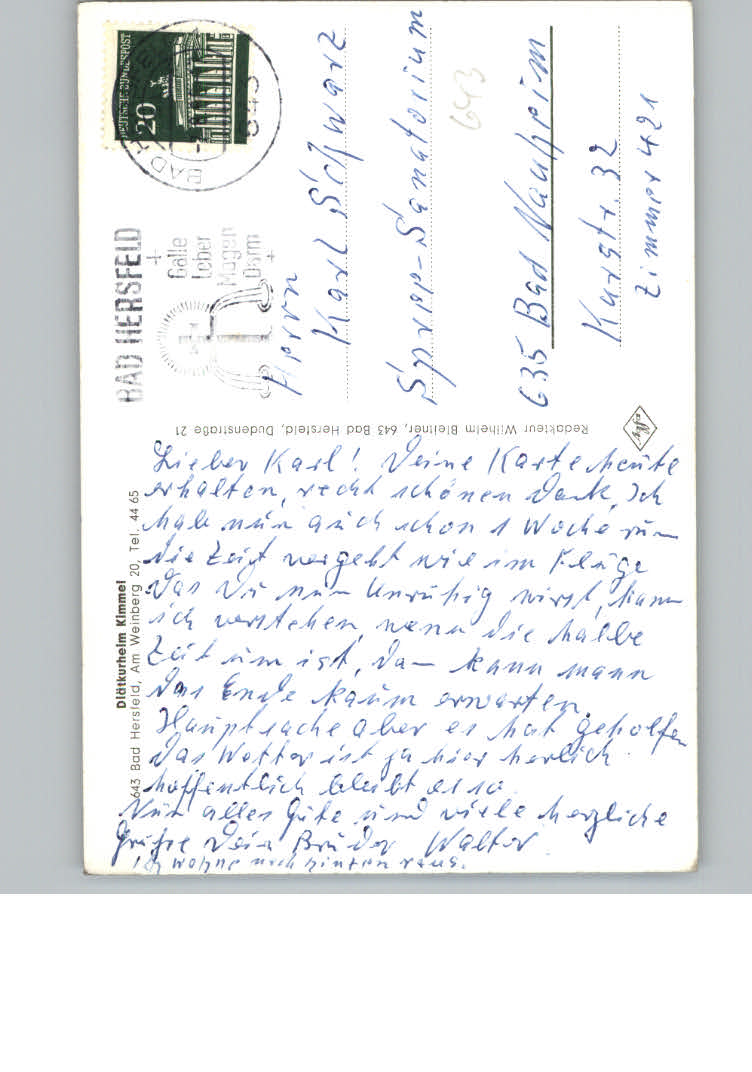 Diätkurheim Kimmel
643 Bad Hersfeld, Am Weinberg 20, Tel. 44 65
Lieber Karl! Deine Karte heute
erhalten, recht schönen Dank, Ich
habe nun auch schon 1 Woche rum
die Zeit vergeht wie im Fluge
Das Du nun Unruhig wirst, kann
ich verstehen, wenn die halbe
Zeit um ist, dan kann mann
das Ende kaum erwarten.
Hauptsache aber es hat geholfen
Das Wetter ist ja hier herlich
hoffentlich bleibt es so.
Nun alles Gute und viele herzliche
Grüße Dein Bruder Walter
Ich wohne nach hinten raus.
Redakteur Wilhelm Bleitner, 643 Bad Hersfeld, Dudenstraße 21
BAD HERSFELD
Galle
Leber
Magen
Darm
DEUTSCHE BUNDESPOST
20
BAD
643
643
Herrn
Karl Schwarz
Sanatorium
635 Bad Nauheim
Kurstr. 32
Zimmer 421